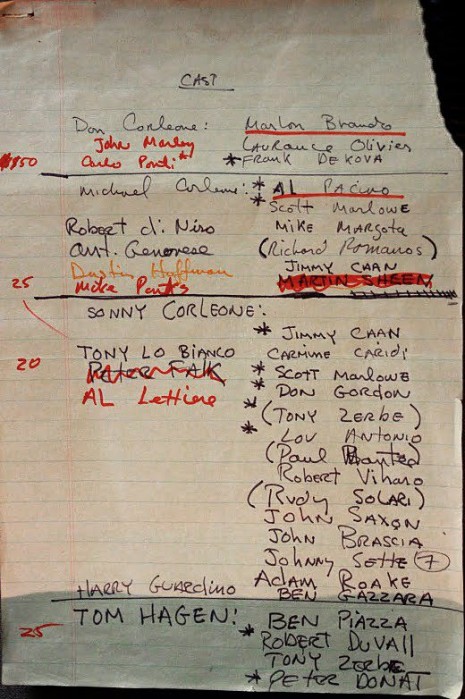 CAST
Don Corleone: Marlon Brando
John Marley Laurance Olivier
$150 Carlo Ponti* * FRANK DE KOVA
Michael Corleone: * AL PACINO
* Scott Marlowe
Robert di Niro MIKE MARGOTA
Ant. Genovese (Richard Romanos)
Dustin Hoffman JIMMY CAAN
25 Mike Parks MARTIN SHEEN
SONNY CORLEONE:
* JIMMY CAAN
TONY LO BIANCO CARMINE CARIDI
20 Peter FALK * SCOTT MARLOWE
AL Lettiere * DON GORDON
* (TONY ZERBE)
* LOU ANTONIO
(Paul)
Robert Viharo
(RUDY SOLARI)
JOHN SAXON
JOHN BRASCIA
Johnny SETTE (7)
Adam ROAKE
HARRY GUARDINO BEN GAZZARA
TOM HAGEN: BEN PIAZZA
25 * ROBERT DUVALL
TONY ZERBE
* PETER DONAT